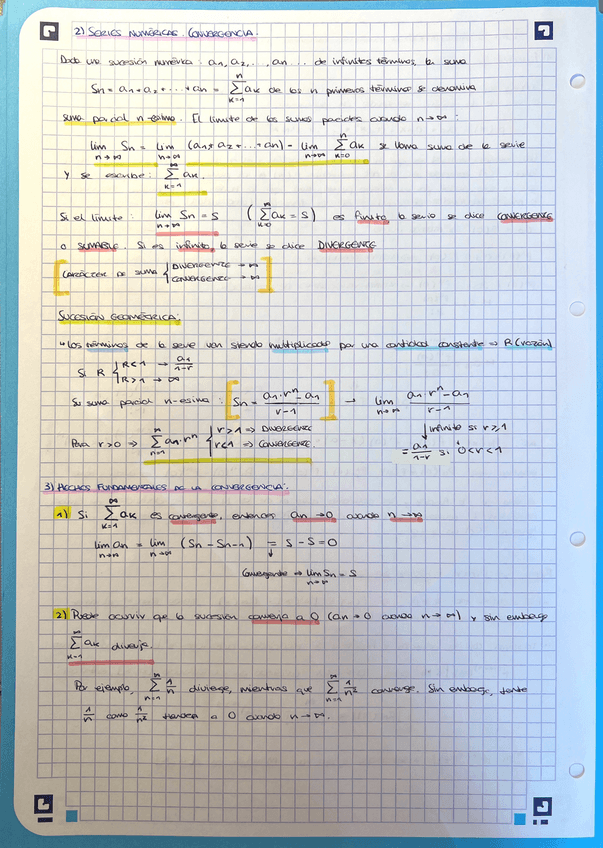 2) SERIES NUMÉRICAS. CONVERGENCIA.
Dada una sucesión numérica: a1, a2, ..., an ... de infinitos términos, la suma
Sn = a1 + a2 + ... + an = ∑ₖ₌₁ⁿ ak de los n primeros términos se denomina
suma parcial n-ésima. El límite de las sumas parciales cuando n→∞:
lim n→∞ Sn = lim n→∞ (a1 + a2 + ... + an) = lim n→∞ ∑ₖ₌₀ⁿ ak se llama suma de la serie
y se escribe: ∑ₖ₌₁^∞ ak.
Si el límite: lim n→∞ Sn = S (∑ₖ₌₀^∞ ak = S) es finito, la serie se dice CONVERGENTE
o SUMABLE. Si es infinito, la serie se dice DIVERGENTE
[CARÁCTER DE SUMA { DIVERGENTE → ∞
CONVERGENTE → ∞ ]
SUCESIÓN GEOMÉTRICA:
↳ Los términos de la serie van siendo multiplicados por una cantidad constante ⇒ R (razón)
Si R { R<1 → a1/1-r
R>1 → ∞
Su suma parcial n-esima: [Sn = a1·rⁿ - a1 / r-1] → lim n→∞ a1·rⁿ - a1 / r-1
Para r>0 ⇒ ∑ₙ₌₁^∞ a1·rⁿ { r>1 ⇒ DIVERGENTE
r<1 ⇒ CONVERGENTE.
↓ infinito si r≥1
= a1/1-r si 0<r<1
3) HECHOS FUNDAMENTALES DE LA CONVERGENCIA:
1) Si ∑ₖ₌₁^∞ ak es convergente, entonces an→0 cuando n→∞
lim n→∞ an = lim n→∞ (Sn - Sn-1) = S - S = 0
↓
Convergente ⇒ lim n→∞ Sn = S
2) Puede ocurrir que la sucesión converja a 0 (an→0 cuando n→∞) y sin embargo
∑ₖ₌₁^∞ ak diverja.
Por ejemplo, ∑ₙ₌₁^∞ 1/n diverge, mientras que ∑ₙ₌₁^∞ 1/n² converge. Sin embargo, tanto
1/n como 1/n² tienden a 0 cuando n→∞.